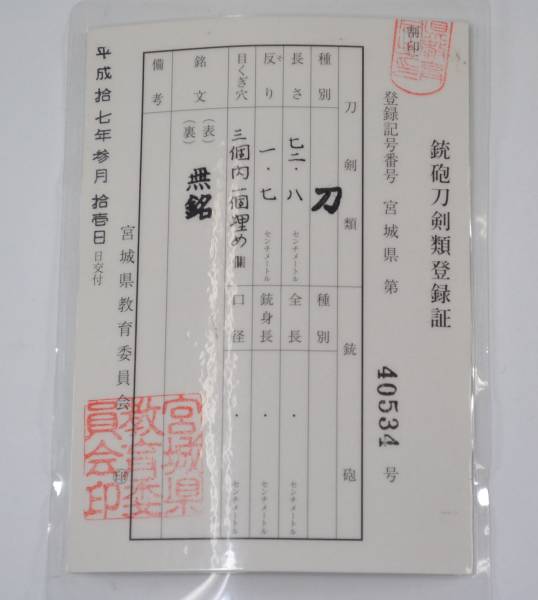 割印
銃砲刀剣類登録証
登録記号番号 宮城県 第 40534 号
刀剣類
種別 刀
長さ 七二・八 センチメートル
反り そ 一・七 センチメートル
目くぎ穴 三個内一個埋め 個
銘文 (表) (裏) 無銘
備考
銃砲
種別
全長 ・ センチメートル
銃身長 ・ センチメートル
口径 ・ センチメートル
宮城県教育委員会 印
宮城県教育委員会印
平成拾七年参月拾壱日 日交付